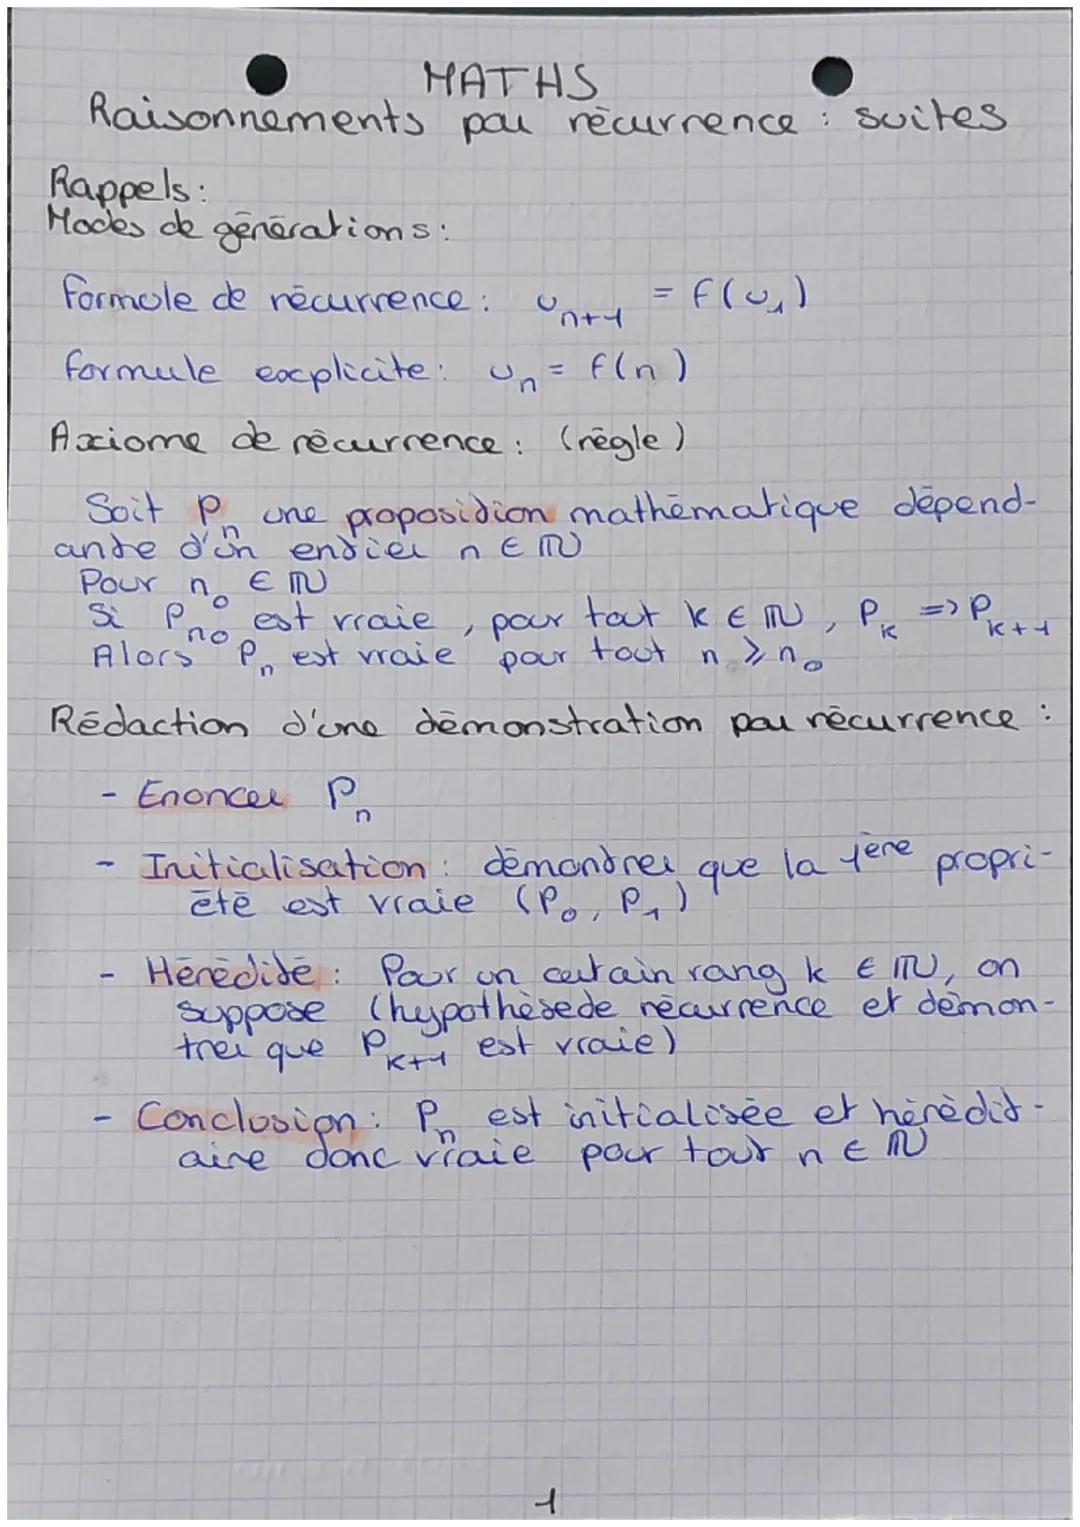 MATHS
Raisonnements par récurrence : suites
Rappels :
Modes de générations :
formule de récurrence : u_{n+1} = f(u_1)
formule explicite : u_n = f(n)
Axiome de récurrence : (règle)
Soit P_n une proposition mathématique dépend-
ante d'un entier n ∈ ℕ
Pour n_0 ∈ ℕ
Si P_{n_0} est vraie, pour tout k ∈ ℕ, P_k => P_{k+1}
Alors P_n est vraie pour tout n ⩾ n_0
Rédaction d'une démonstration par récurrence :
- Enoncer P_n
- Initialisation : démontrer que la 1ère propri-
été est vraie (P_0, P_1)
- Hérédité : Pour un certain rang k ∈ ℕ, on
suppose (hypothèse de récurrence et démon-
trer que P_{k+1} est vraie)
- Conclusion : P_n est initialisée et hérédit-
aire donc vraie pour tout n ∈ ℕ
1